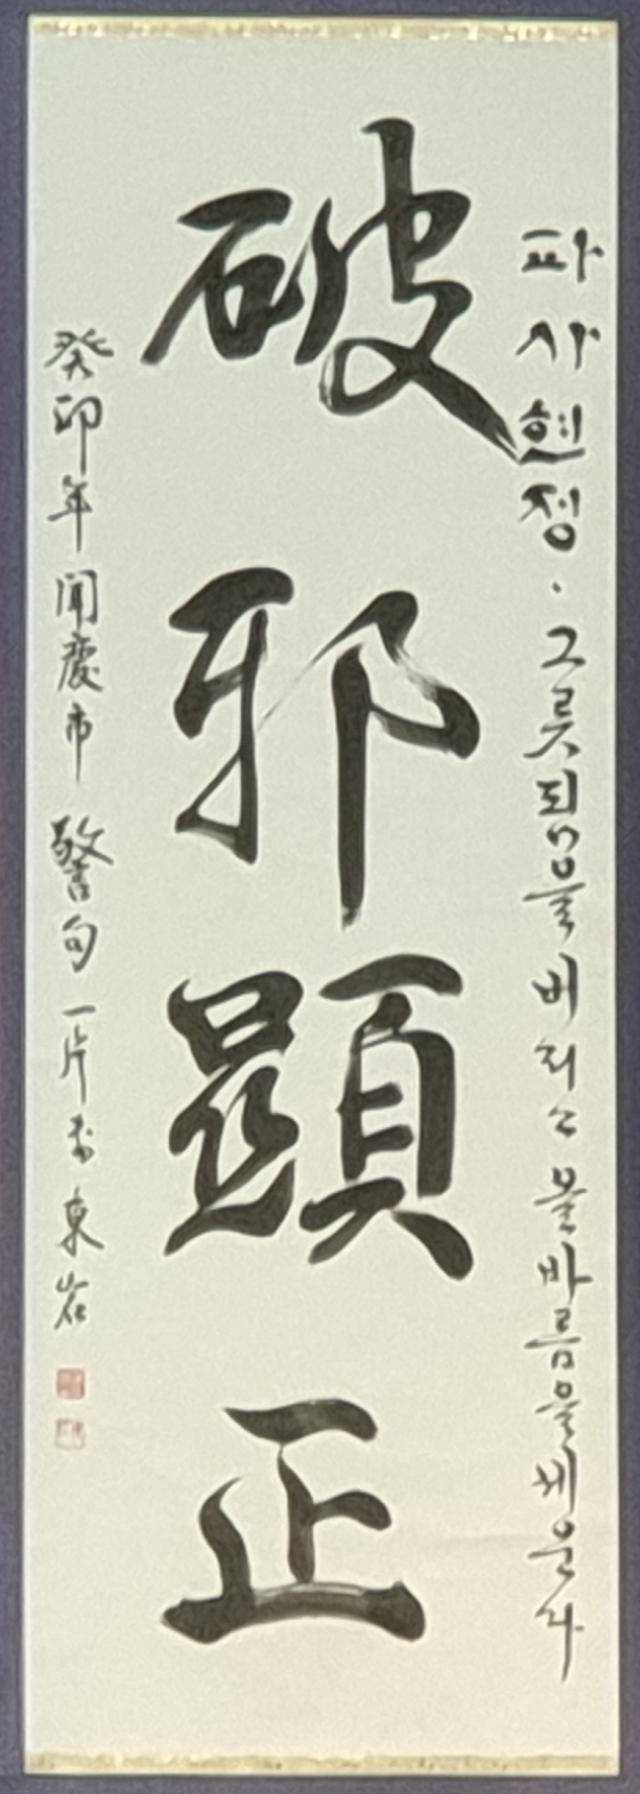 파사현정 · 그릇됨을 버리고 올바름을 세운다
破邪顯正
癸卯年 聞慶市 警句 一片 東岩